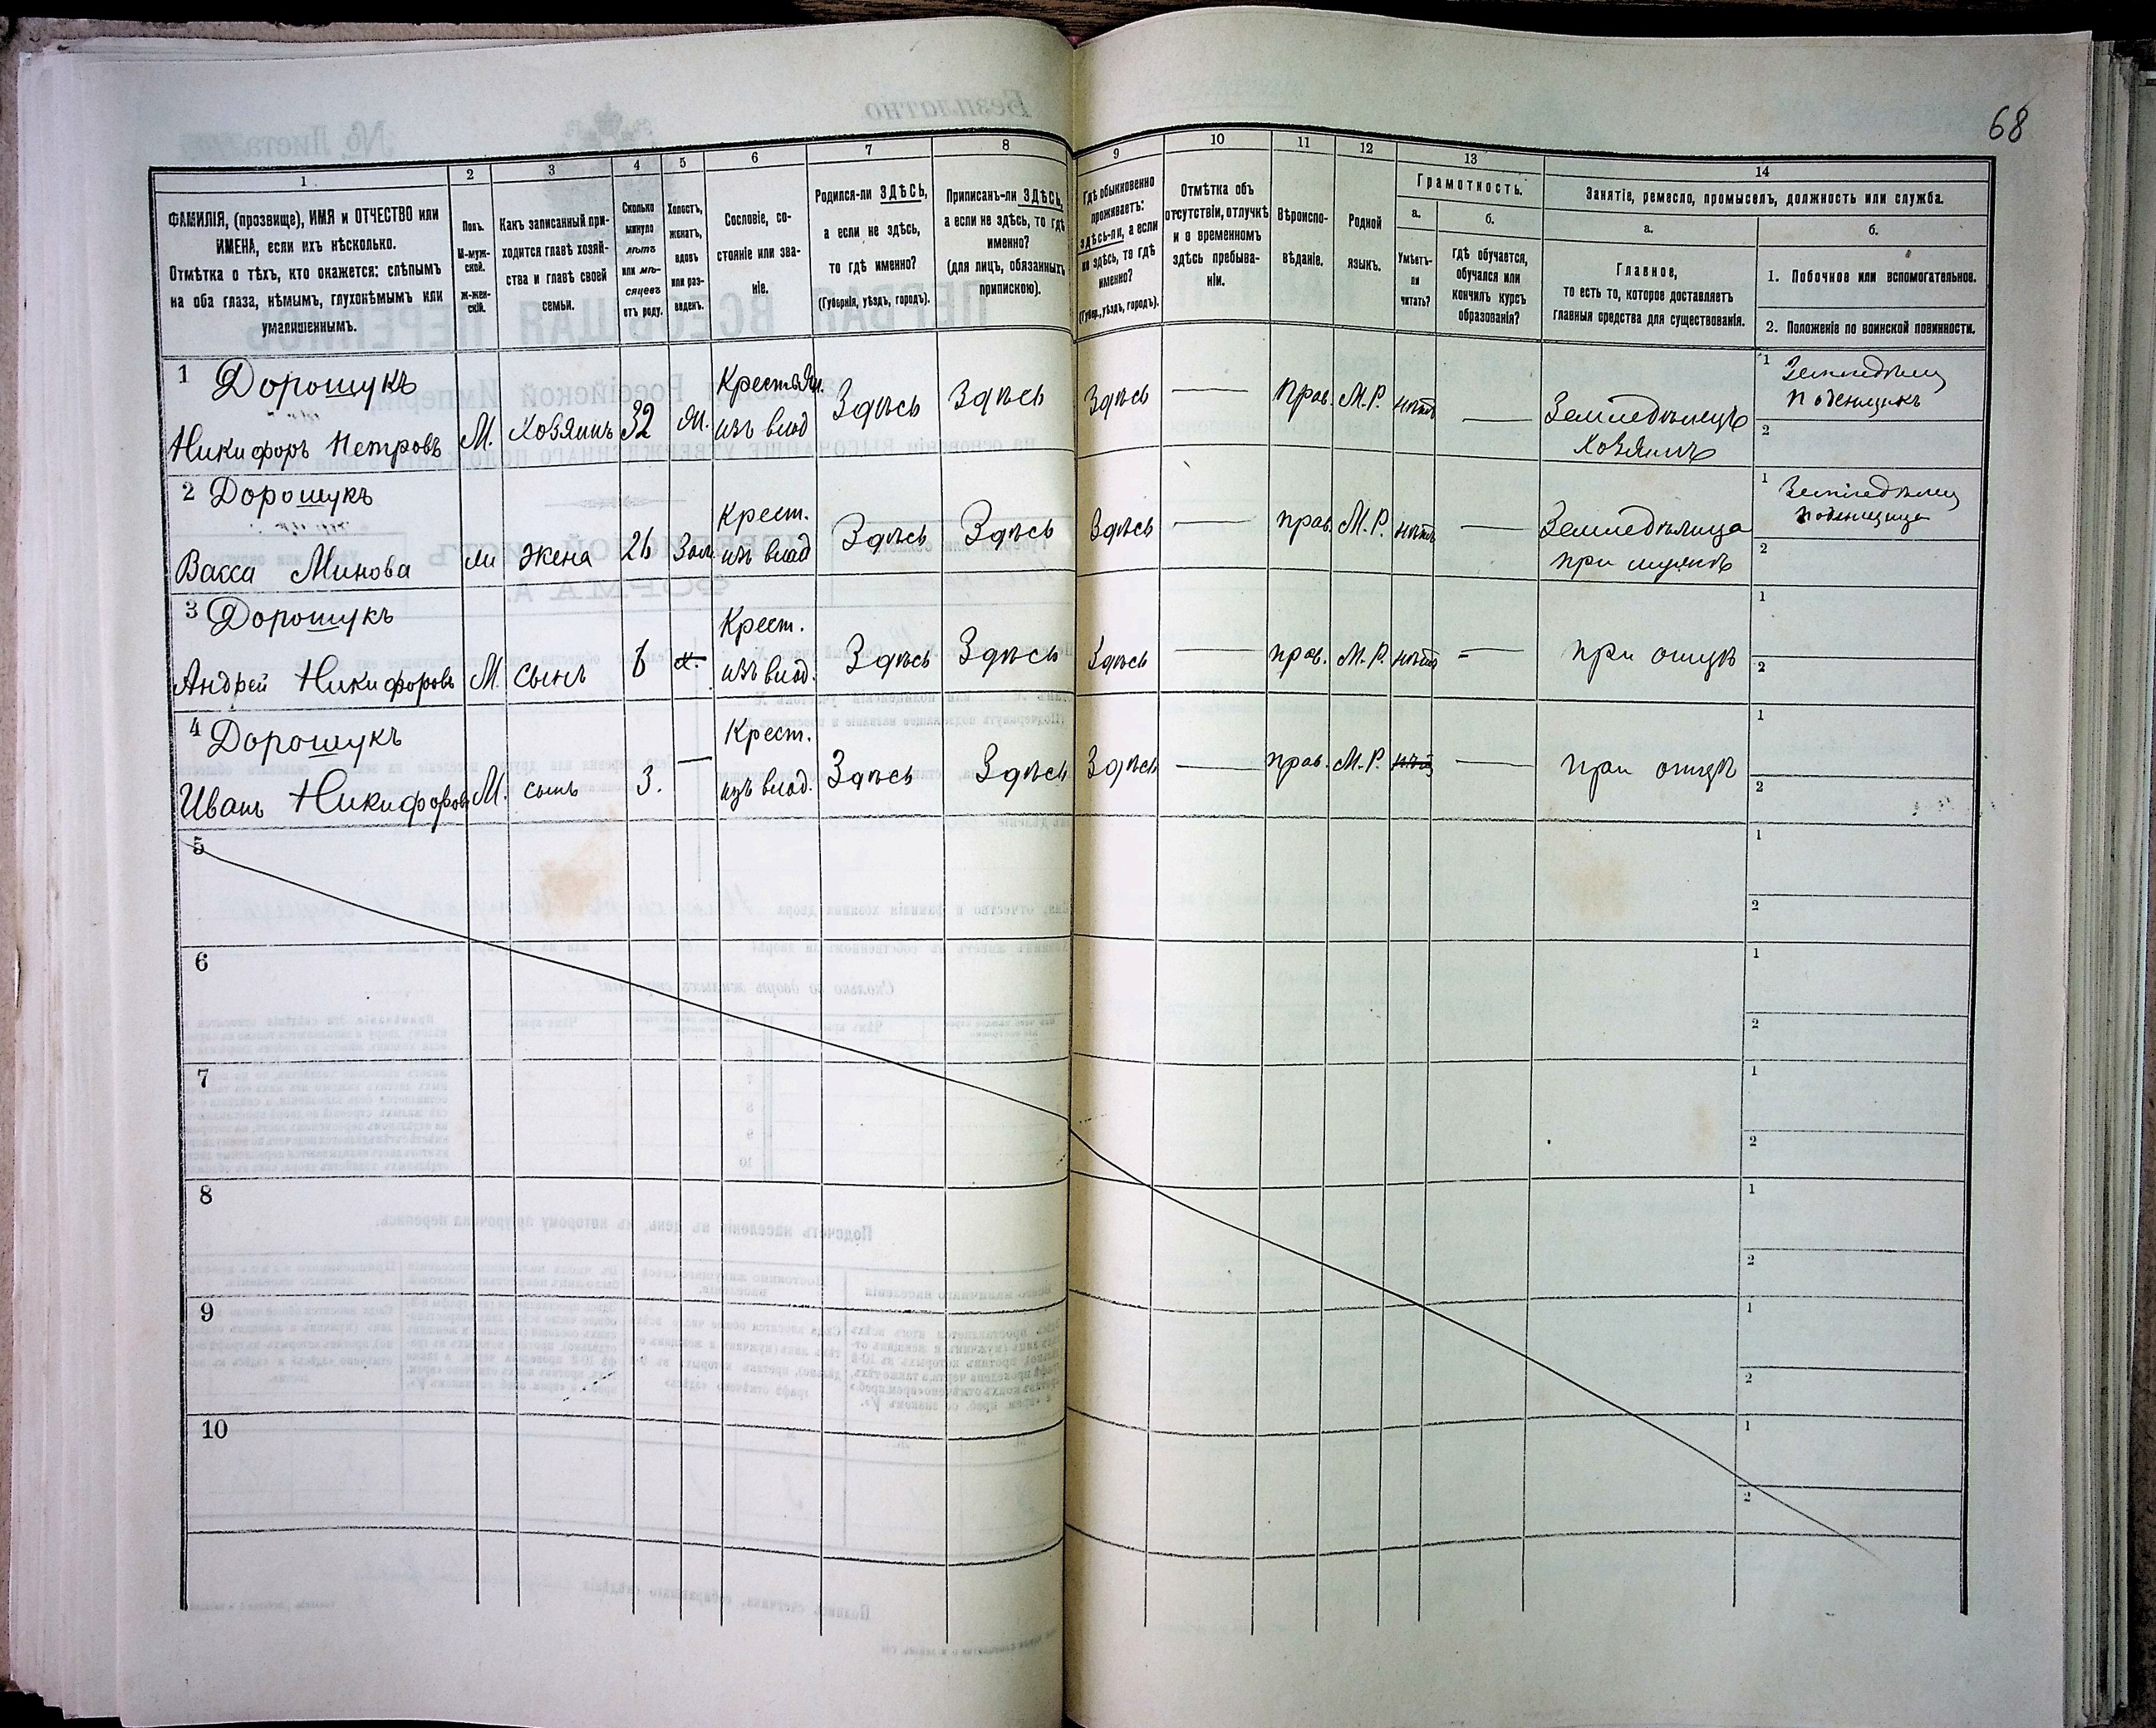 68
1 2 3 4 5 6 7 8 9 10 11 12 13 14
ФАМИЛІЯ, (прозвище), ИМЯ и ОТЧЕСТВО или
ИМЕНА, если ихъ нѣсколько.
Отмѣтка о тѣхъ, кто окажется: слѣпымъ
на оба глаза, нѣмымъ, глухонѣмымъ или
умалишеннымъ.
Полъ.
М-муж-
ской.
Ж-жен-
скій.
Какъ записанный при-
ходится главѣ хозяй-
ства и главѣ своей
семьи.
Сколько
минуло
лѣтъ
или мѣ-
сяцевъ
отъ роду.
Холостъ,
женатъ,
вдовъ
или раз-
веденъ.
Сословіе, со-
стояніе или зва-
ніе.
Родился-ли ЗДѢСЬ,
а если не здѣсь,
то гдѣ именно?
(Губернія, уѣздъ, городъ).
Приписанъ-ли ЗДѢСЬ,
а если не здѣсь, то гдѣ
именно?
(для лицъ, обязанныхъ
припискою).
Гдѣ обыкновенно
проживаетъ:
здѣсь-ли, а если
не здѣсь, то гдѣ
именно?
(Губер., уѣздъ, городъ).
Отмѣтка объ
отсутствіи, отлучкѣ
и о временномъ
здѣсь пребыва-
ніи.
Вѣроиспо-
вѣданіе.
Родной
языкъ.
Грамотность.
а.
Умѣетъ-
ли
читать?
б.
Гдѣ обучается,
обучался или
кончилъ курсъ
образованія?
Занятіе, ремесло, промыселъ, должность или служба.
а.
Главное,
то есть то, которое доставляетъ
главныя средства для существованія.
б.
1. Побочное или вспомогательное.
2. Положеніе по воинской повинности.
1 Дорошукъ Крестьян. 1 Земледѣлец
Никифоръ Петровъ М. Хозяинъ 32 М. изъ влад Здѣсь Здѣсь Здѣсь — Прав. М.Р. нѣтъ — Земледѣлецъ Поденщикъ
Хозяинъ 2
2 Дорошукъ Крест. 1 Земледѣлец
Васса Минова жена 26 Зам изъ влад Здѣсь Здѣсь Здѣсь — прав. М.Р. нѣтъ — Земледѣлица поденщица
при мужѣ 2
3 Дорошукъ Крест. 1
Андрей Никифоровъ М. сынъ 6 изъ влад. Здѣсь Здѣсь Здѣсь — прав. М.Р. нѣтъ — при отцѣ 2
4 Дорошукъ Крест. 1
Иванъ Никифоровъ М. сынъ 3. — изъ влад. Здѣсь Здѣсь Здѣсь — прав. М.Р. нѣтъ — при отцѣ 2
5 1
2
6 1
2
7 1
2
8 1
2
9 1
2
10 1
2